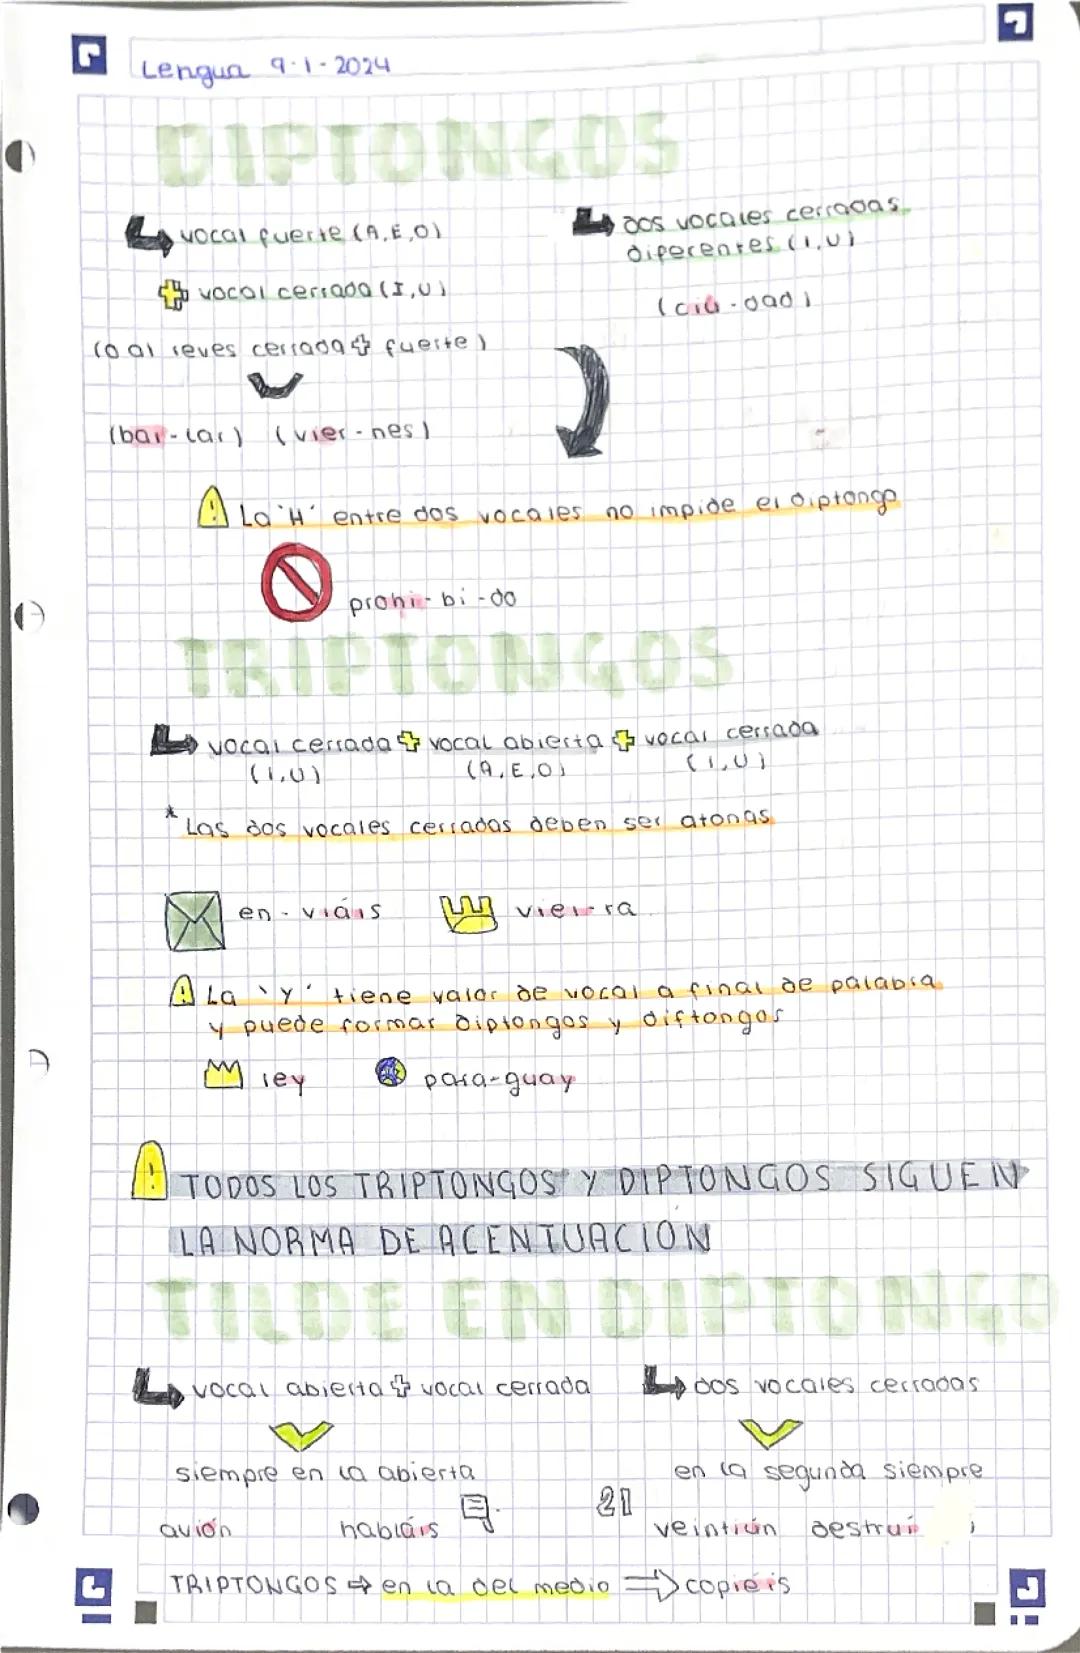 Lengua 9-1-2024
DIPTONGOS
vocal fuerte (A,E,O)
+ vocal cerrada (I,U)
(o al reves cerrada + fuerte)
(bai-lar) (vier-nes)
dos vocales cerradas
diferentes (I,U)
(ciu-dad)
! La 'H' entre dos vocales no impide el diptongo
prohi-bi-do
TRIPTONGOS
vocal cerrada + vocal abierta + vocal cerrada
(I,U) (A,E,O) (I,U)
* Las dos vocales cerradas deben ser atonas
en-viáis viei-ra
! La 'y' tiene valor de vocal a final de palabra
y puede formar diptongos y diftongos
ley para-guay
! TODOS LOS TRIPTONGOS Y DIPTONGOS SIGUEN
LA NORMA DE ACENTUACION
TILDE EN DIPTONGO
vocal abierta + vocal cerrada
siempre en la abierta
avión habláis
dos vocales cerradas
en la segunda siempre
21
veintiún destruí
TRIPTONGOS ⇒ en la del medio ⇒ copiéis